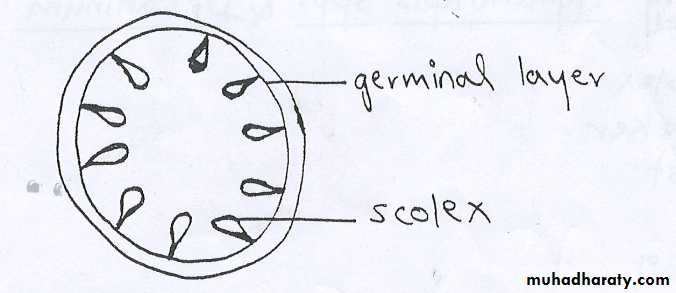 germinal layer
scolex
muhadharaty.com